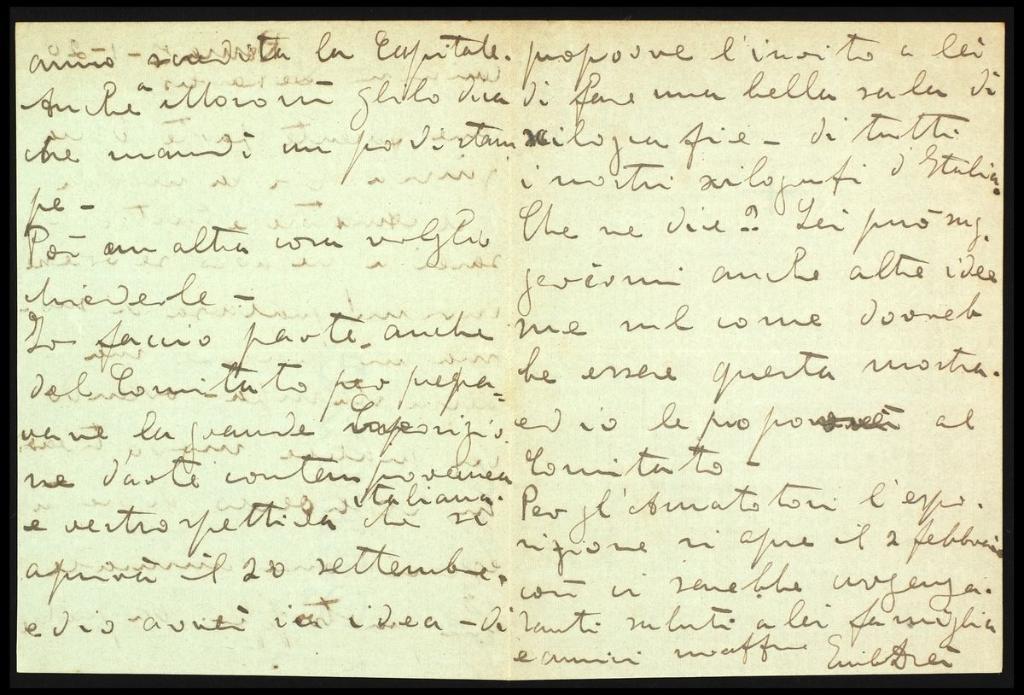 anno - sarebbe la Capitale.
Anche a Moroni glielo dica
che mandi un po' di stam
pe -
Poi un altra cosa voglio
chiederle -
Io faccio parte anche
del Comitato per prepa=
rare la grande Esposizio
ne d'arte contemporanea
italiana
e retrospettiva che si
aprirà il 20 settembre.
ed io avrei idea - di
proporre l'invito a lei
di fare una bella sala di
xilografie - di tutti
i nostri xilografi d'Italia.
Che ne dice? Lei può sug.
gerirmi anche altre idee
me sul come dovreb
be essere questa mostra.
ed io le proporrei al
Comitato -
Per gl'Amatori l'espo.
sizione si apre il 2 febbraio
così ci sarebbe urgenza.
Tanti saluti a lei famiglia
e amici